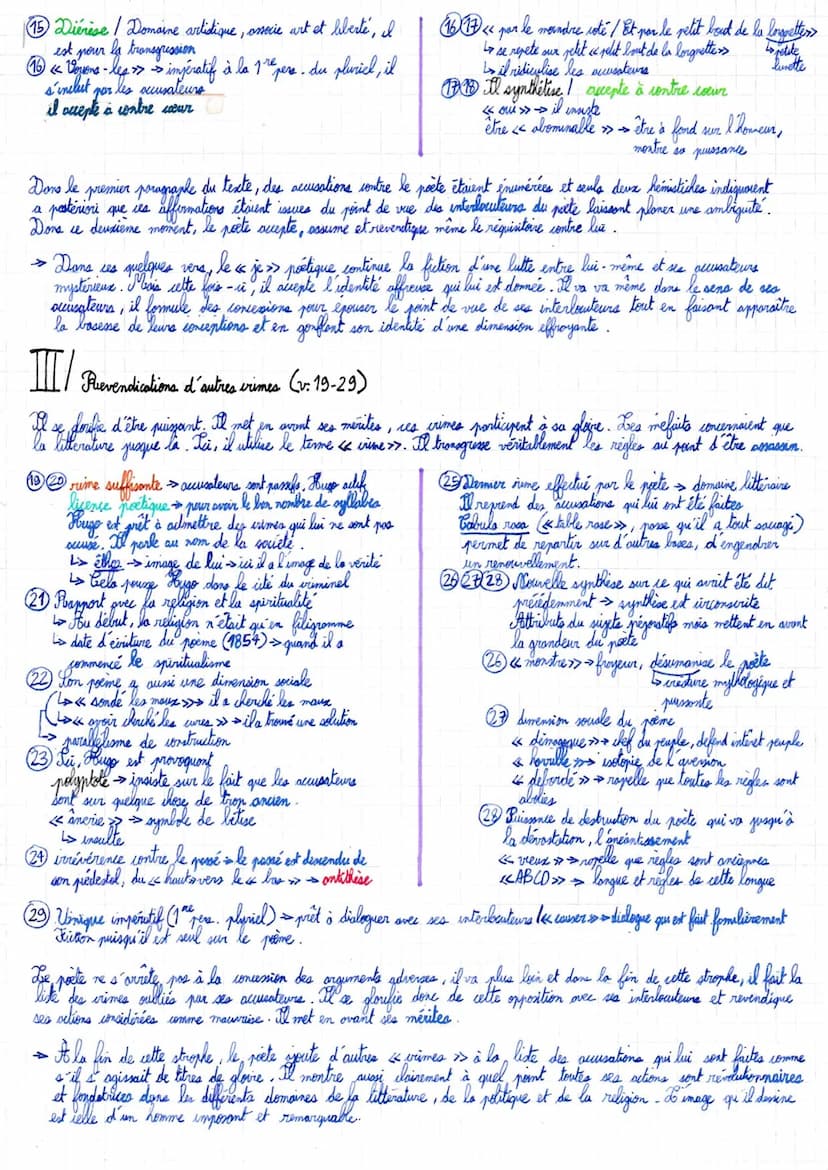 ⑮ Diérèse / Domaine artistique, associe art et liberté, il
est pour la transgression
⑯ « Voyons-les » → impératif à la 1ʳᵉ pers. du pluriel, il
s'inclut par les accusateurs
il accepte à contre cœur
⑯⑰ « par le moindre côté / Et par le petit bout de la lorgnette »
↳ se répète sur petit « petit bout de la lorgnette »
↳ petite lunette
↳ il ridiculise les accusateurs
⑰⑱ Il synthétise / accepte à contre cœur
« oui » → il insiste
être « abominable » → être à fond sur l'honneur,
montre sa puissance
Dans le premier paragraphe du texte, des accusations contre le poète étaient énumérées et seuls deux hémistiches indiquaient
a posteriori que ces affirmations étaient issues du point de vue des interlocuteurs du poète laissant planer une ambiguïté.
Dans ce deuxième moment, le poète accepte, assume et revendique même le réquisitoire contre lui.
→ Dans ces quelques vers, le « je » poétique continue la fiction d'une lutte entre lui-même et ses accusateurs
mystérieux. Mais cette fois-ci, il accepte l'identité affreuse qui lui est donnée. Il va va même dans le sens de ses
accusateurs, il formule des concessions pour épouser le point de vue de ses interlocuteurs tout en faisant apparaître
la bassesse de leurs conceptions et en gonflant son identité d'une dimension effroyante.
III / Revendications d'autres crimes (v. 19-29)
Il se glorifie d'être puissant. Il met en avant ses mérites, ces crimes participent à sa gloire. Les méfaits concernaient que
la littérature jusque là. Ici, il utilise le terme « crime ». Il transgresse véritablement les règles au point d'être assassin.
⑲⑳ rime suffisante → accusateurs sont passifs, Hugo actif
licence poétique → pour avoir le bon nombre de syllabes
Hugo est prêt à admettre des crimes qui lui ne sont pas
accusé. Il parle au nom de la société.
↳ éthos → image de lui → ici il a l'image de la vérité
↳ Cela pousse Hugo dans le côté du criminel
㉑ Rapport avec la religion et la spiritualité
↳ Au début, la religion n'était qu'en filigramme
↳ date d'écriture du poème (1854) → quand il a
commencé le spiritualisme
㉒ Son poème a aussi une dimension sociale
↳ « sondé les maux » → il a cherché les maux
↳ « avoir cherché les cures » → il a trouvé une solution
↳ parallélisme de construction
㉓ Ici, Hugo est provoquant
polyptote → insiste sur le fait que les accusateurs
sont sur quelque chose de trop ancien.
« ânerie » → symbole de bêtise
↳ insulte
㉔ irrévérence contre le passé → le passé est descendu de
son piédestal, du « haut » vers le « bas » → antithèse
㉕ Dernier crime effectué par le poète → domaine littéraire
Il reprend des accusations qui lui ont été faites
Tabula rasa (« table rase », passe qu'il a tout saccagé)
permet de repartir sur d'autres bases, d'engendrer
un renouvellement.
㉖㉗㉘ Nouvelle synthèse sur ce qui avait été dit
précédemment → synthèse est circonscrite
Attributs du sujets péjoratifs mais mettent en avant
la grandeur du poète
㉖ « monstre » → frayeur, désumanise le poète
↳ créature mythologique et
puissante
㉗ dimension sociale du poème
« démagogue » → chef du peuple, défend intérêt peuple
« horrible » → isotopie de l'aversion
« débordé » → rapelle que toutes les règles sont
abolies
㉘ Puissance de destruction du poète qui va jusqu'à
la dévastation, l'anéantissement
« vieux » → rapelle que règles sont anciennes
« ABCD » → langue et règles de cette langue
㉙ Unique impératif (1ʳᵉ pers. pluriel) → prêt à dialoguer avec ses interlocuteurs / « causer » → dialogue qui est fait familièrement
Fiction puisqu'il est seul sur le poème.
Le poète ne s'arrête pas à la concession des arguments adverses, il va plus loin et dans la fin de cette strophe, il fait la
liste des crimes oubliés par ses accusateurs. Il se glorifie donc de cette opposition avec ses interlocuteurs et revendique
ses actions considérées comme mauvaise. Il met en avant ses mérites.
→ À la fin de cette strophe, le poète ajoute d'autres « crimes » à la liste des accusations qui lui sont faites comme
s'il s'agissait de titres de gloire. Il montre aussi clairement à quel point toutes ses actions sont révolutionnaires
et fondatrices dans les différents domaines de la littérature, de la politique et de la religion. L'image qu'il dessine
est celle d'un homme imposant et remarquable.